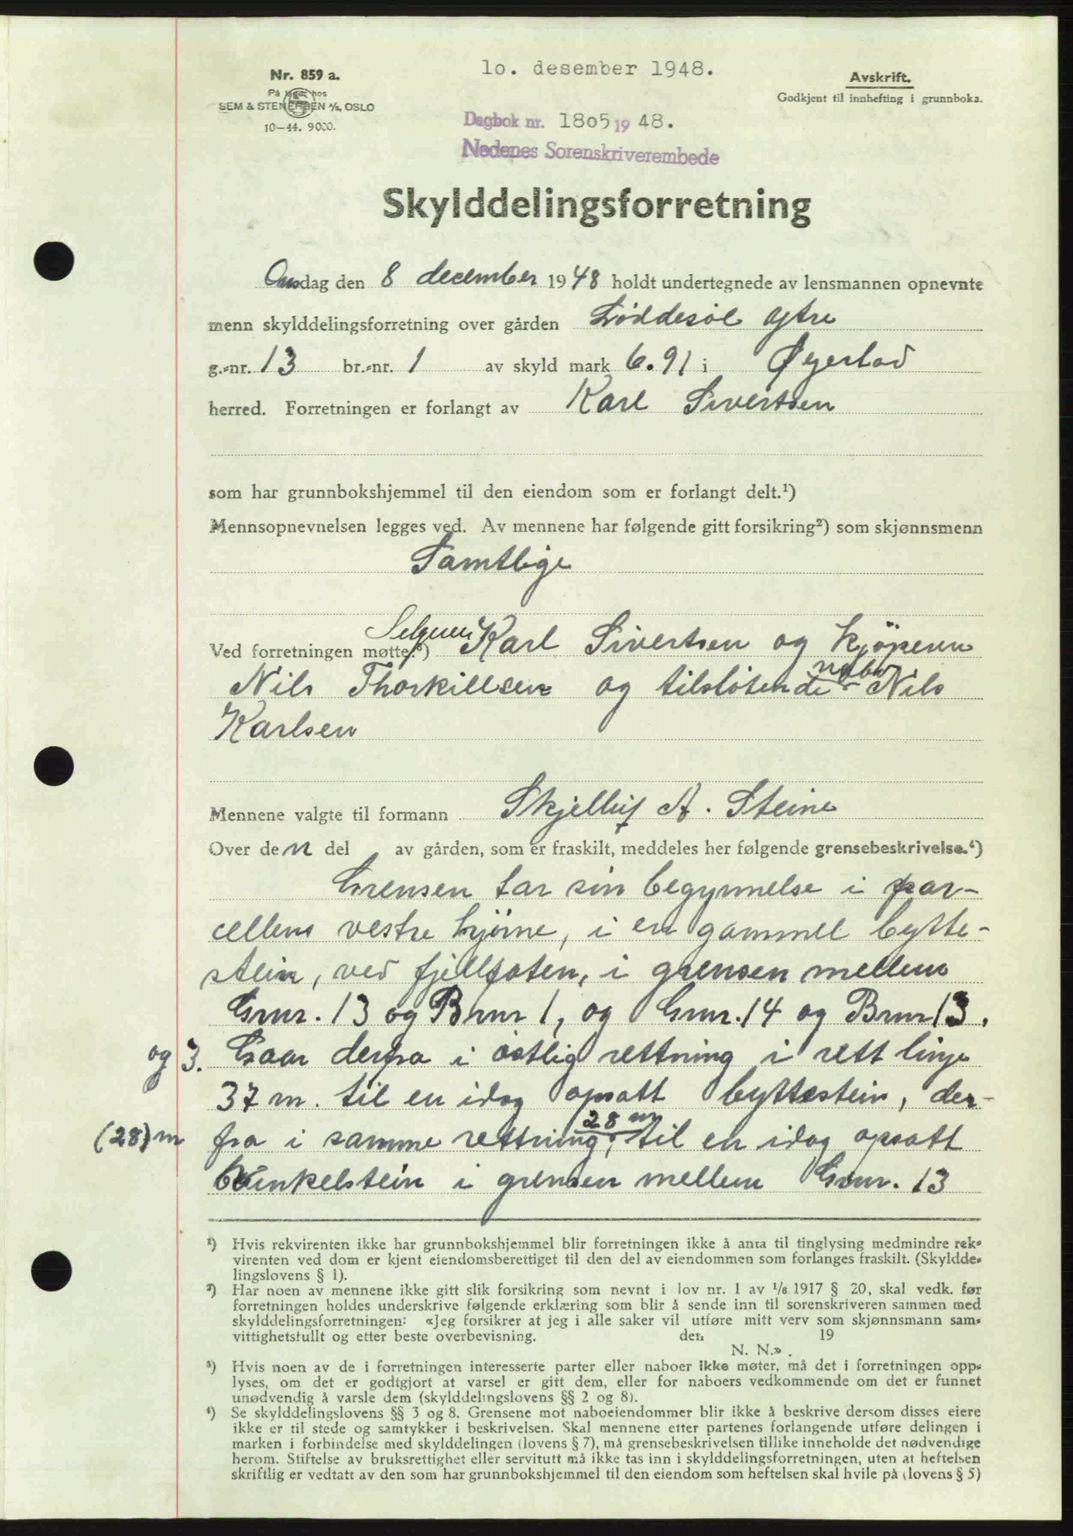 Nr. 859 a.
På lager hos
SEM & STENERSEN A/S, OSLO
10-44. 9000.
10. desember 1948.
Dagbok nr. 1805 19 48.
Nedenes Sorenskriverembede
Avskrift.
Godkjent til innhefting i grunnboka.
Skylddelingsforretning
Onsdag den 8 december 1948 holdt undertegnede av lensmannen opnevnte
menn skylddelingsforretning over gården Løddesøl øftre
g.-nr. 13 br.-nr. 1 av skyld mark 6.91 i Øyestad
herred. Forretningen er forlangt av Karl Sivertsen
som har grunnbokshjemmel til den eiendom som er forlangt delt.¹)
Mennsopnevnelsen legges ved. Av mennene har følgende gitt forsikring²) som skjønnsmenn
Samtlige
Ved forretningen møtte:³) Selgeren Karl Sivertsen og kjöperen
Nils Thorkillsen og tilstötende nabo - Nils
Karlsen
Mennene valgte til formann Skjellulf A. Steine
Over den del av gården, som er fraskilt, meddeles her følgende grensebeskrivelse.⁴)
Grensen tar sin begynnelse i par-
cellens vestre hjörne, i en gammel bytte-
stein, ved fjellfoten, i grensen mellem
Gnr. 13 og Brnr 1, og Gnr. 14 og Brnr 13.
og 3. Gaar derfra i østlig rettning i rett linje
37 m. til en idag opsatt byttestein, der-
(28) m fra i samme rettning, 28 m til en idag opsatt
Vinkelstein i grensen mellem Gnr. 13
¹) Hvis rekvirenten ikke har grunnbokshjemmel blir forretningen ikke å anta til tinglysing medmindre rek-
virenten ved dom er kjent eiendomsberettiget til den del av eiendommen som forlanges fraskilt. (Skyldde-
lingslovens § 1).
²) Har noen av mennene ikke gitt slik forsikring som nevnt i lov nr. 1 av 1/6 1917 § 20, skal vedk. før
forretningen holdes underskrive følgende erklæring som blir å sende inn til sorenskriveren sammen med
skylddelingsforretningen: «Jeg forsikrer at jeg i alle saker vil utføre mitt verv som skjønnsmann sam-
vittighetsfullt og etter beste overbevisning. den 19
N. N.».
³) Hvis noen av de i forretningen interesserte parter eller naboer ikke møter, må det i forretningen opp-
lyses, om det er godtgjort at varsel er gitt dem, eller for naboers vedkommende om det er funnet
unødvendig å varsle dem (skylddelingslovens §§ 2 og 8).
⁴) Se skylddelingslovens §§ 3 og 8. Grensene mot naboeiendommer blir ikke å beskrive dersom disses eiere
ikke er til stede og samtykker i beskrivelsen. Skal mennene etter partenes forlangende utføre delingen i
marken i forbindelse med skylddelingen (lovens § 7), må grensebeskrivelsen tillike inneholde det nødvendige
herom. Stiftelse av bruksrettighet eller servitutt må ikke tas inn i skylddelingsforretningen, uten at heftelsen
skriftlig er vedtatt av den som har grunnbokshjemmel til den eiendom som heftelsen skal hvile på (lovens § 5)